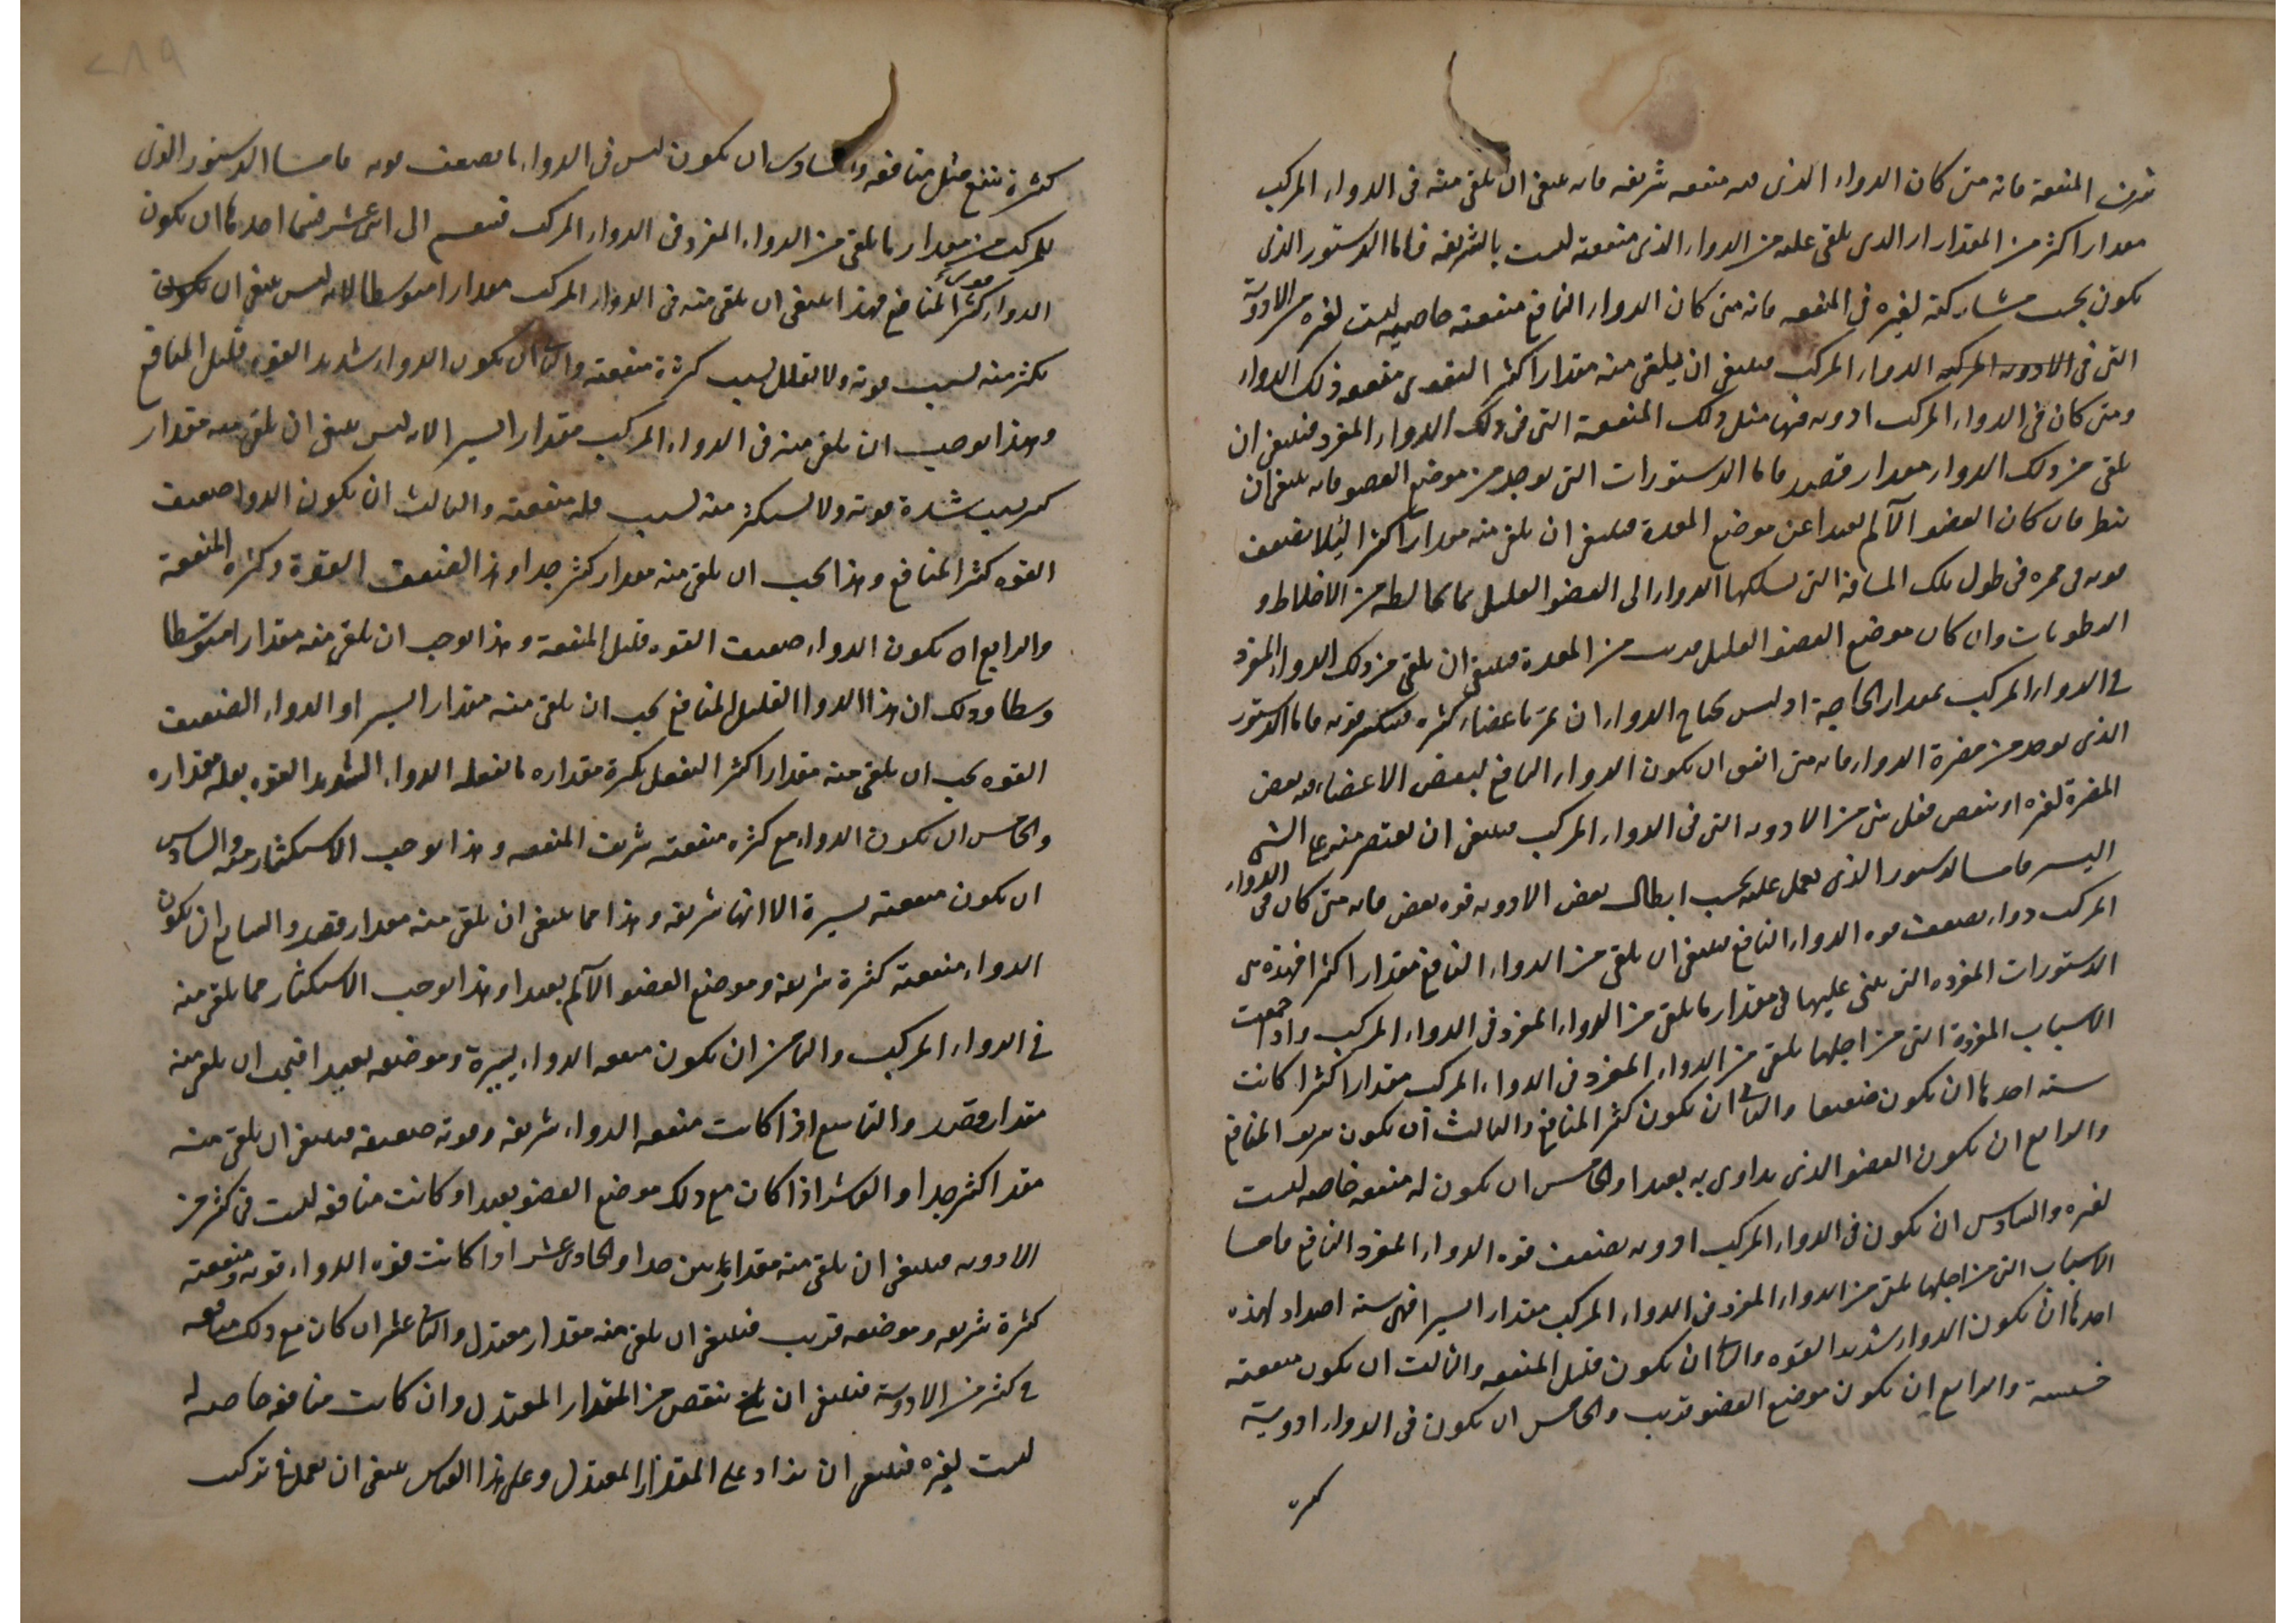 شرف المنفعة فانه متى كان الدواء الذى له منفعه شريفه فانه ينبغى ان يلقى منه فى الدواء المركب
مقدارا اكثر من المقدار الذى يلقى عليه من الدواء الذى منفعته ليست بالشريفه فاما الدستور الذى
يكون بحسب مشاركته لغيره فى المنفعه فانه متى كان الدواء النافع منفعته خاصيه ليست لغيره من الادوية
التى فى الادويه المركبه الدواء المركب فينبغى ان يلقى منه مقدارا اكثر لتقوى منفعه ذلك الدواء
ومتى كان فى الدواء المركب ادويه فيها مثل ذلك المنفعة التى فى ذلك الدواء المفرد فينبغى ان
يلقى من ذلك الدواء مقدار قصد فاما الدستورات التى توجد من موضع العضو فانه ينبغى ان
ينظر فان كان العضو الآلم بعيدا عن موضع المعدة فينبغى ان يلقى منه مقدارا اكثر لئلا يضعف
قوته فى ممره فى طول تلك المسافة التى يسلكها الدواء الى العضو العليل بما يخالطه من الاخلاط و
الرطوبات وان كان موضع العضو العليل قريب من المعدة فينبغى ان يلقى من ذلك الدواء المفرد
فى الدواء المركب بمقدار الحاجة اذ ليس يحتاج الدواء ان يمر باعضاء كثيره فتنكسر قوته فاما الدستور
الذى يوجد من مضرة الدواء فانه متى اتفق ان يكون الدواء النافع لبعض الاعضاء فيه بعض
المضرة لغيره او ينقص فعل شى من الادويه التى فى الدواء المركب فينبغى ان يقتصر منه على الشى
اليسير فاما الدستور الذى يعمل عليه بحسب ابطال بعض الادويه قوه بعض فانه متى كان فى الدواء
المركب دواء يضعف قوه الدواء النافع فينبغى ان يلقى من الدواء النافع مقدارا اكثر فهذه هى
الدستورات المفرده التى يبنى عليها فى مقدار ما يلقى من الدواء المفرد فى الدواء المركب واذا جمعت
الاسباب المفردة التى من اجلها يلقى من الدواء المفرد فى الدواء المركب مقدارا كثرا كانت
سته احدها ان يكون ضعيفا والثانى ان يكون كثير المنافع والثالث ان يكون شريف المنافع
والرابع ان يكون العضو الذى يداوى به بعيدا والخامس ان يكون له منفعه خاصه ليست
لغيره والسادس ان يكون فى الدواء المركب ادويه يضعف قوه الدواء المفرد النافع فاما
الاسباب التى من اجلها يلقى من الدواء المفرد فى الدواء المركب مقدارا يسيرا فهى سته اضداد لهذه
احدها ان يكون الدواء شديد القوه والثانى ان يكون قليل المنفعه والثالث ان يكون منفعته
خسيسة والرابع ان يكون موضع العضو قريب والخامس ان يكون فى الدواء ادويه
كثيرة
كثيرة تنفع مثل منافعه والسادس ان يكون ليس فى الدواء ما يضعف قوته فاما الدستور الذى
للمركب من مقدار ما يلقى من الدواء المفرد فى الدواء المركب فتقسم الى اثنى عشر قسما احدها ان يكون
الدواء قوى كثير المنافع فهذا ينبغى ان يلقى منه فى الدواء المركب مقدارا متوسطا لانه ليس ينبغى ان يكون
يكثر منه لسبب قوته ولا يقلل لسبب كثرة منفعته والثانى ان يكون الدواء شديد القوه قليل المنافع
وهذا يوجب ان يلقى منه فى الدواء المركب مقدار اليسير الا انه ليس ينبغى ان يلقى منه مقدار
كثير لسبب شدة قوته ولا يستكثر منه لسبب قله منفعته والثالث ان يكون الدوا ضعيف
القوه كثير المنافع وهذا يجب ان يلقى منه مقدار كثير جدا وهذا لضعف القوة وكثره المنفعة
والرابع ان يكون الدواء ضعيف القوه قليل المنفعة وهذا يوجب ان يلقى منه مقدارا متوسطا
وسطا وذلك ان هذا الدوا القليل المنافع يجب ان يلقى منه مقدار اليسير او الدواء الضعيف
القوه يجب ان يلقى منه مقدارا كثر ليفعل بكثرة مقداره ما يفعله الدواء الشديد القوه بقله مقداره
والخامس ان يكون الدواء مع كثره منفعته شريف المنفعه وهذا يوجب الاستكثار منه والسادس
ان يكون منفعته يسيرة الا انها شريفه وهذا مما ينبغى ان يلقى منه مقدار قصد والسابع ان يكون
الدواء منفعته كثيرة شريفه وموضع العضو الآلم بعيدا وهذا يوجب الاستكثار مما يلقى منه
فى الدواء المركب والثامن ان يكون منفعه الدواء يسيرة وموضعه بعيدا فيجب ان يلقى منه
مقدار قصد والتاسع اذا كانت منفعه الدواء شريفه وقوته ضعيفه فينبغى ان يلقى منه
مقدا كثير جدا والعاشر اذا كان مع ذلك موضع العضو بعيدا وكانت منافعه ليست فى كثير من
الادويه فينبغى ان يلقى منه مقدار جدا والحادى عشر اذا كانت قوه الدواء قويه ومنفعته
كثيرة شريفه وموضعه قريب فينبغى ان يلقى منه مقدار معتدل والثانى عشر ان كان مع ذلك منافعه
فى كثير من الادوية فينبغى ان ينقص من المقدار المعتدل وان كانت منافعه خاصه له
ليست لغيره فينبغى ان يزاد على المقدار المعتدل وعلى هذا القياس ينبغى ان يعمل فى تركيب